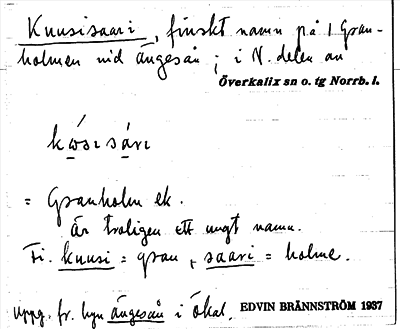 Kuusisaari, finskt namn på 1 Gran-
holmen vid ängesån; i N. delen av
Överkalix sn o. tg Norrb. l.
kǫ́sɩsạ́rɩ
= Granholm ek.
är troligen ett ungt namn.
Fi. kuusi = gran, saari = holme.
uppg. fr. byn ängesån i Ökal.
EDVIN BRÄNNSTRÖM 1937